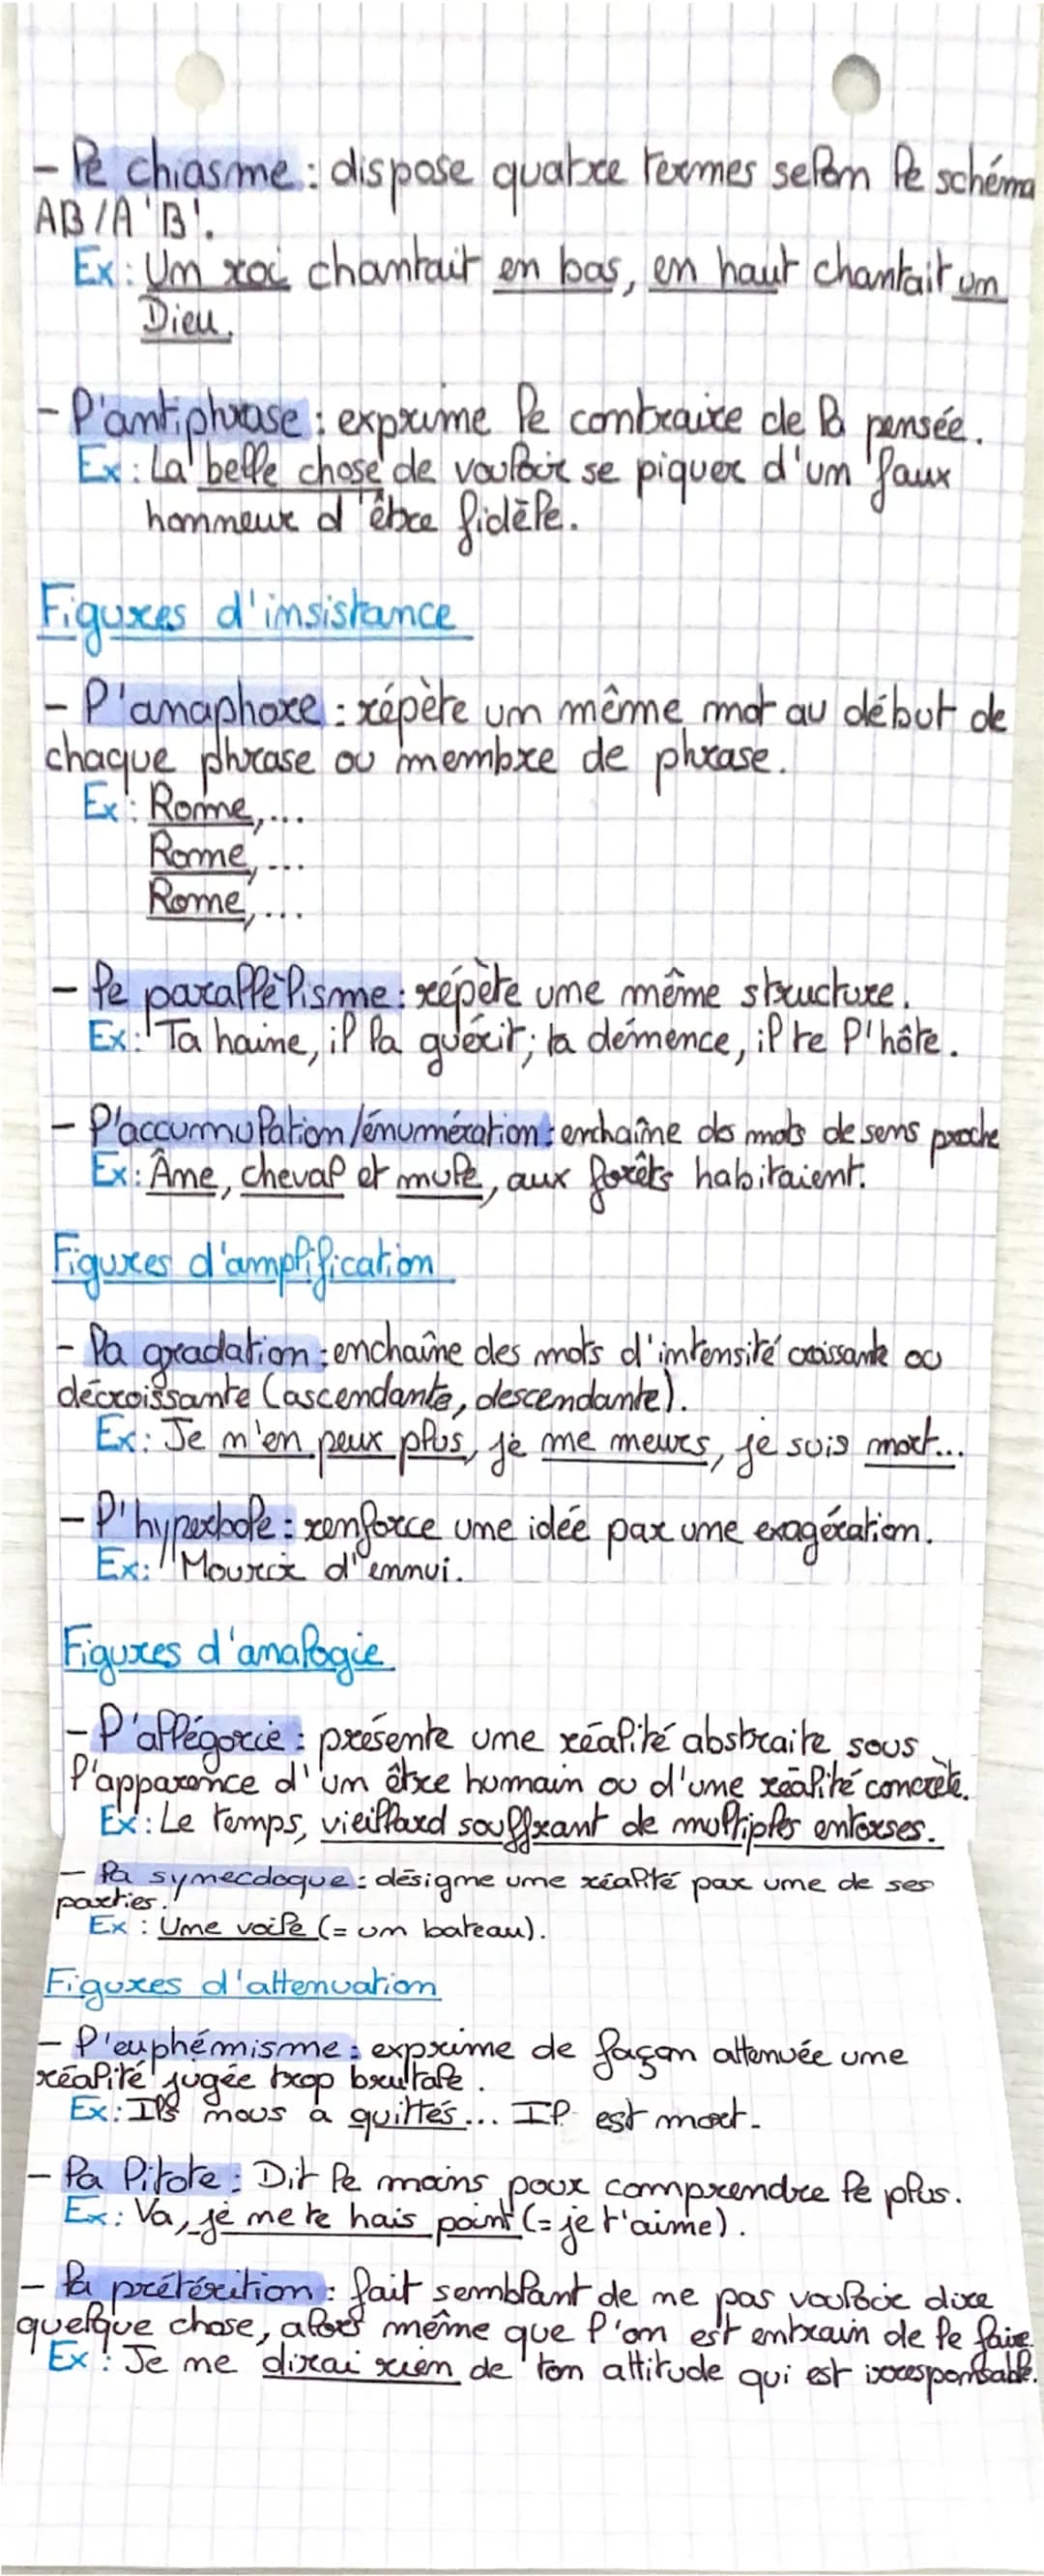 - Le chiasme : dispose quatre termes selon le schéma
AB/A'B'.
Ex : Un roi chantait en bas, en haut chantait un
Dieu.
- L'antiphrase : exprime le contraire de la pensée.
Ex : La belle chose de vouloir se piquer d'un faux
honneur d'être fidèle.
Figures d'insistance
- L'anaphore : répète un même mot au début de
chaque phrase ou membre de phrase.
Ex : Rome,...
Rome,...
Rome,...
- le parallèlisme : répète une même structure.
Ex : Ta haine, il la guérit ; ta démence, il te l'hôte.
- L'accumulation/énumération : enchaîne des mots de sens proche
Ex : Âme, cheval et mule, aux forêts habitaient.
Figures d'amplification
- la gradation : enchaîne des mots d'intensité croissante ou
décroissante (ascendante, descendante).
Ex : Je m'en peux plus, je me meurs, je suis mort...
- L'hyperbole : renforce une idée par une exagération.
Ex : Mourir d'ennui.
Figures d'analogie
- L'allégorie : présente une réalité abstraite sous
l'apparence d'un être humain ou d'une réalité concrète.
Ex : Le temps, vieillard souffrant de multiples entorses.
- la synecdoque : désigne une réalité par une de ses
parties.
Ex : Une voile (= un bateau).
Figures d'attenuation
- L'euphémisme : exprime de façon attenuée une
réalité jugée trop brutale.
Ex : Ils nous a quittés... Il est mort.
- la litote : Dit le moins pour comprendre le plus.
Ex : Va, je ne te hais point (= je t'aime).
- la prétérition : fait semblant de ne pas vouloir dire
quelque chose, alors même que l'on est entrain de le faire.
Ex : Je ne dirai rien de ton attitude qui est irresponsable.